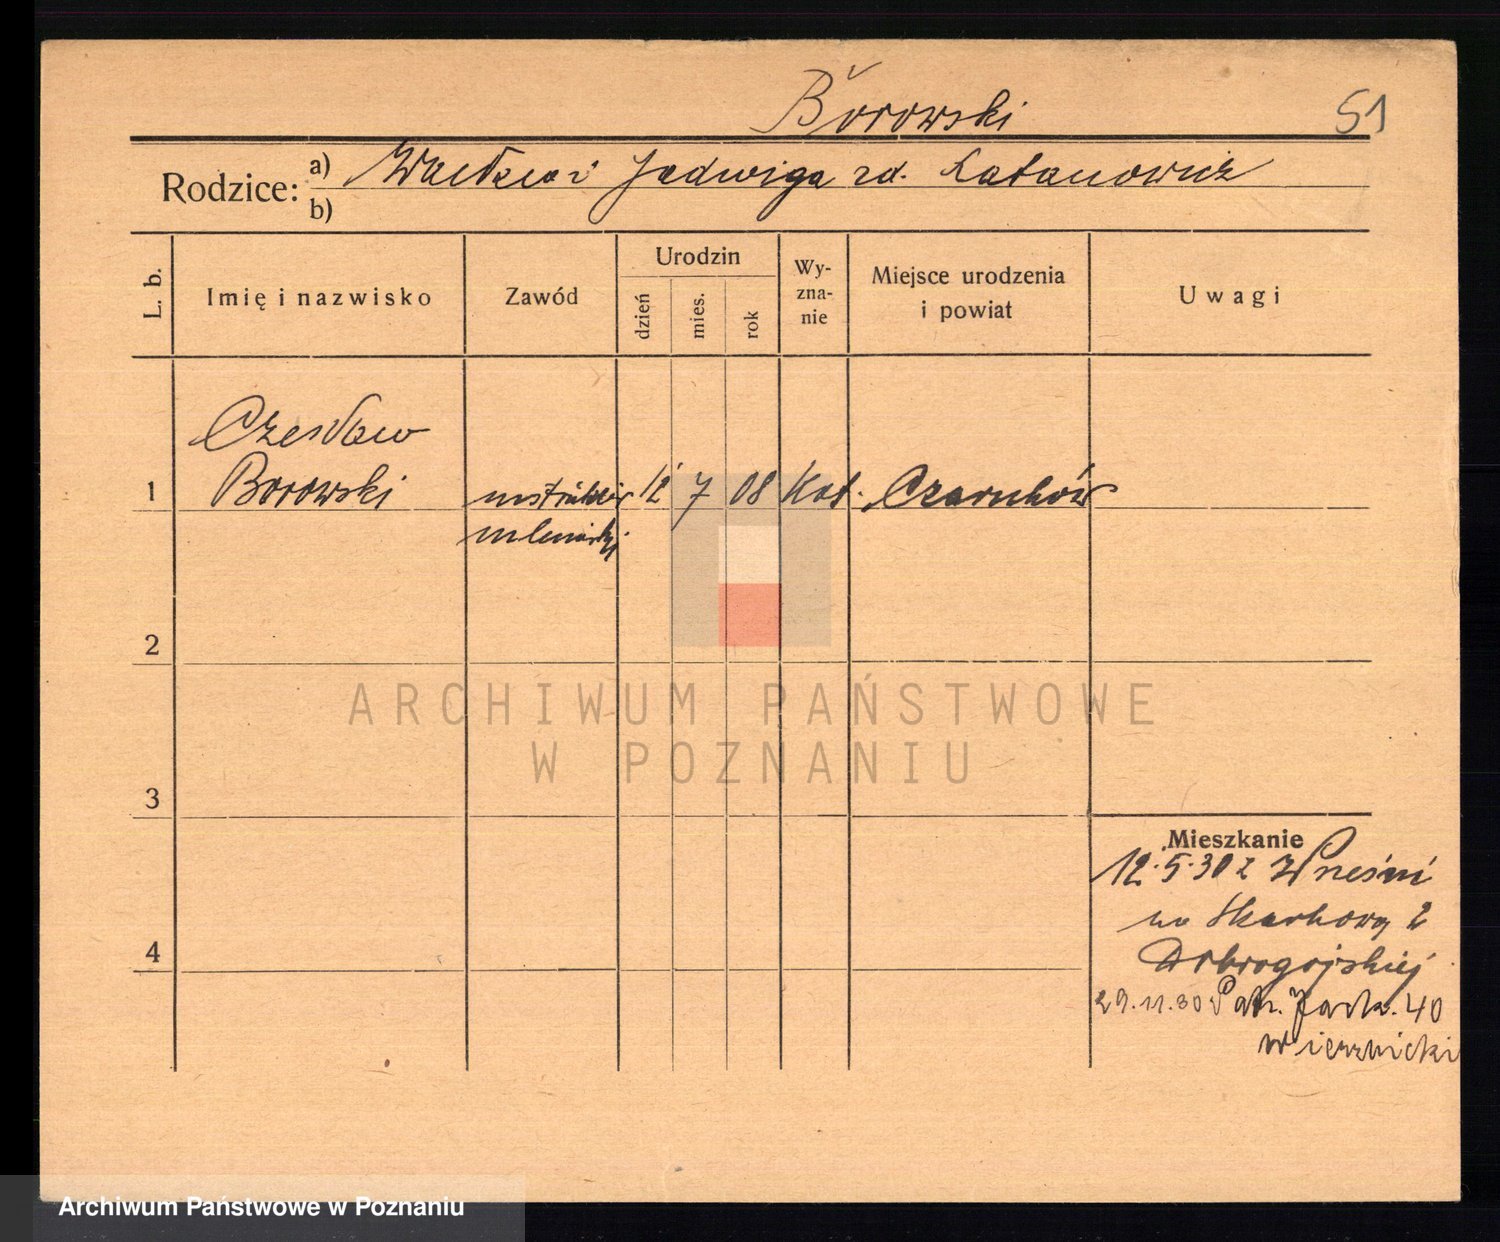 Borowski
51
Rodzice: a) Wacław i Jadwiga zd. Łatanowicz
b)
L. b.
Imię i nazwisko
Zawód
Urodzin
dzień
mies.
rok
Wy-
zna-
nie
Miejsce urodzenia
i powiat
Uwagi
Czesław
1 Borowski instruktor 12 7 08 Kat. Czarnków
mleczarski
2
3
4
Mieszkanie
12.5.30 z Wrześni
na Skarbową 2
Dobrogojskiej
29.11.30 Patr. Jack. 40
Wierzbicki
ARCHIWUM PAŃSTWOWE
W POZNANIU
Archiwum Państwowe w Poznaniu